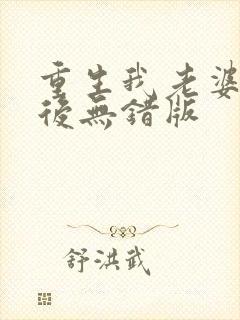 重生我老婆
後無錯版
舒洪武